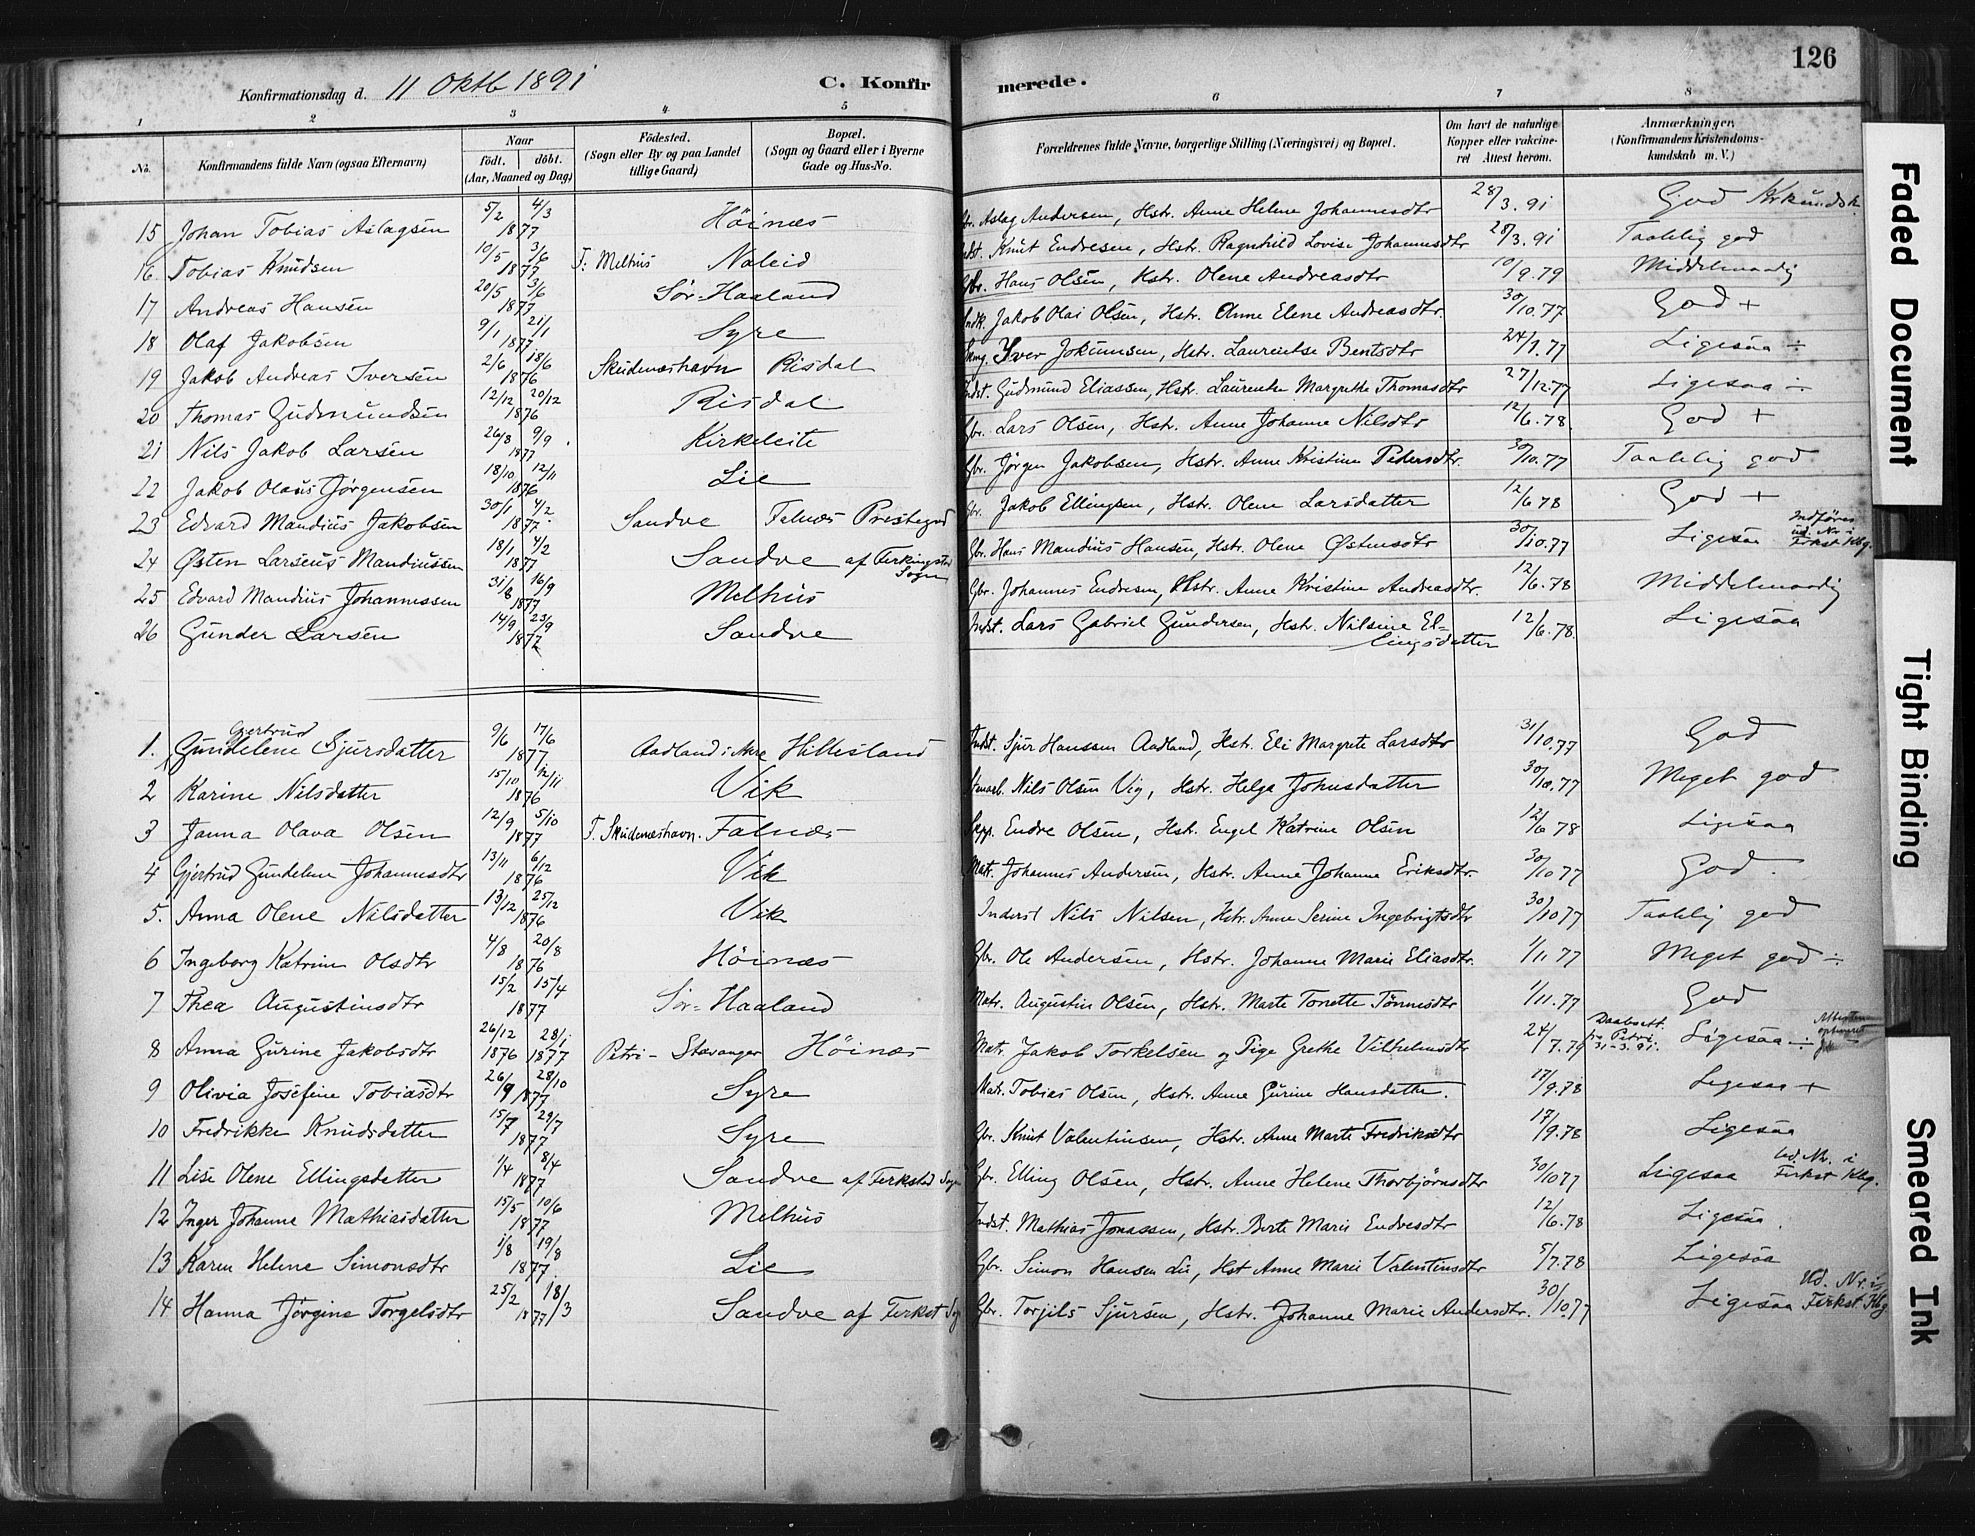 126
Konfirmationsdag d. 11 Oktb 1891 C. Konfir merede.
1 2 3 4 5 6 7 8
No. Konfirmandens fulde Navn (ogsaa Efternavn) Naar født. døbt. (Aar, Maaned og Dag) Fødested. (Sogn eller By og paa Landet tillige Gaard) Bopæl. (Sogn og Gaard eller i Byerne Gade og Hus-No. Forældrenes fulde Navne, borgerlige Stilling (Næringsvei) og Bopæl. Om havt de naturlige Kopper eller vakcineret Attest herom. Anmærkninger. (Konfirmandens Kristendomskundskab m. V.)
15 Johan Tobias Aslagsen 5/2 4/3 1877 Höinæs Gbr. Aslag Andersen, Hstr. Anne Helene Johannesdtr 28/3.91 God Krkundsk.
16 Tobias Knudsen 10/5 3/6 1877 F: Melhus Naleid Indst. Knut Endresen, Hstr. Ragnhild Lovise Johannesdtr 28/3.91 Taalelig god
17 Andreas Hansen 20/5 3/6 1877 Sör-Haaland Gbr. Hans Olsen, Hstr. Olene Andreasdtr 10/9.79 Middelmaadig
18 Olaf Jakobsen 9/1 21/1 1877 Syre Jakob Olai Olsen, Hstr. Anne Elene Andreasdtr 30/10.77 God +
19 Jakob Andreas Iversen 2/6 18/6 1876 Skudenæshavn Risdal Iver Jokumsen, Hstr. Laurentse Bentsdtr 24/7.77 Ligesaa ÷
20 Thomas Gudmundsen 12/12 20/12 1876 Risdal Indst. Gudmund Eliassen, Hstr. Laurentse Margrethe Thomasdtr 27/12.77 Ligesaa ÷
21 Nils Jakob Larsen 26/8 9/9 1877 Kirkeleite Gbr. Lars Olsen, Hstr. Anne Johanne Nilsdtr 12/6.78. God +
22 Jakob Olaus Jörgensen 18/10 12/11 1876 Lie Gbr. Jörgen Jakobsen, Hstr. Anne Kristine Pedersdtr. 30/10.77 Taalelig god
23 Edvard Mandius Jakobsen 30/1 4/2 1877 Sandve Falnæs Prestegd Gbr. Jakob Ellingsen, Hstr. Olene Larsdatter 12/6 78 God +
24 Østen Larseus Mandiussen 18/1 4/2 1877 Sandve af Ferkingstad Sogn Gbr. Hans Mandius Hansen, Hstr. Olene Østensdtr 30/10.77 Ligesaa Indföres ud. Nr i Ferkst Kbg.
25 Edvard Mandius Johannessen 31/8 16/9 1877 Melhus Gbr. Johannes Endresen, Hstr. Anne Kristine Andreasdtr. 12/6.78 Middelmaadig
26 Gunder Larsen 14/9 23/9 1877 Sandve Indst. Lars Gabriel Gundersen, Hstr. Nilsine Ellingsdatter 12/6.78. Ligesaa
1. Gjertrud Gundelene Sjursdatter 9/6 17/6 1877 Aadland i Akre Hillesland Indst. Sjur Hanssen Aadland, Hstr. Eli Margrete Larsdtr 31/10.77 God
2 Karine Nilsdatter 15/10 12/11 1876 Vik Nils Olsen Vig, Hstr. Helga Johnsdatter 30/10.77 Meget god
3 Janna Olava Olsen 12/9 5/10 1877 F. Skudenæshavn. Falnæs Skpp. Endre Olsen, Hstr. Engel Katrine Olsen 12/6 78 Ligesaa
4 Gjertrud Gundelene Johannesdtr 13/11 6/12 1876 Vik Matr. Johannes Andersen, Hstr. Anne Johanne Eriksdtr. 30/10 77 God.
5. Anna Olene Nilsdatter 13/12 25/12 1876 Vik Inderst Nils Nilsen, Hstr. Anne Serine Ingebrigtsdtr 30/10 77 Taalelig god
6 Ingeborg Katrine Olsdtr 4/8 20/8 1876 Höinæs Gbr. Ole Andersen, Hstr. Johanne Marie Eliasdtr. 1/11 77 Meget god ÷
7 Thea Augustinsdtr 15/2 15/4 1877 Sör-Haaland Matr. Augustin Olsen, Hstr. Marte Tonette Tönnesdtr 1/11.77 God
8 Anna Gurine Jakobsdtr 26/12 1876 28/1 1877 Petri- Stavanger Höinæs Matr. Jakob Torkelsen og Pige Grethe Vilhelmsdtr 24/7.79 Daabsatt. fra Petri 31-3.91. Ligesaa ÷
9 Olivia Josefine Tobiasdtr 26/9 28/10 1877 Syre Matr. Tobias Olsen, Hstr. Anne Gurine Hansdatter. 17/9.78 Ligesaa +
10 Fredrikke Knudsdatter 15/7 29/7 1877 Syre Gbr. Knut Valentinsen, Hstr. Anne Marte Fredriksdtr 17/9.78 Ligesaa
11 Lise Olene Ellingsdatter 1/4 8/4 1877 Sandve af Ferkstad Sogn Gbr. Elling Olsen, Hstr. Anne Helene Thorbjörnsdtr 30/10 77 Ligesaa Ud. Nr. i Ferkst Kbg.
12 Inger Johanne Mathiasdatter 15/5 10/6 1877 Melhus Indst. Mathias Jonassen, Hstr. Berte Marie Endresdtr 12/6.78 Ligesaa.
13 Karen Helene Simonsdtr 1/8 19/8 1877. Lie Gbr. Simon Hansen Lie, Hst Anne Marie Valentinsdtr 5/7.78 Ligesaa
14 Hanna Jörgine Torgelsdtr 25/2 18/3 1877 Sandve af Ferkst Sogn Gbr. Torjils Sjursen, Hstr. Johanne Marie Andersdtr. 30/10.77 Ligesaa Ud. Nr. i Ferkst. Kbg
Faded Document
Tight Binding
Smeared Ink